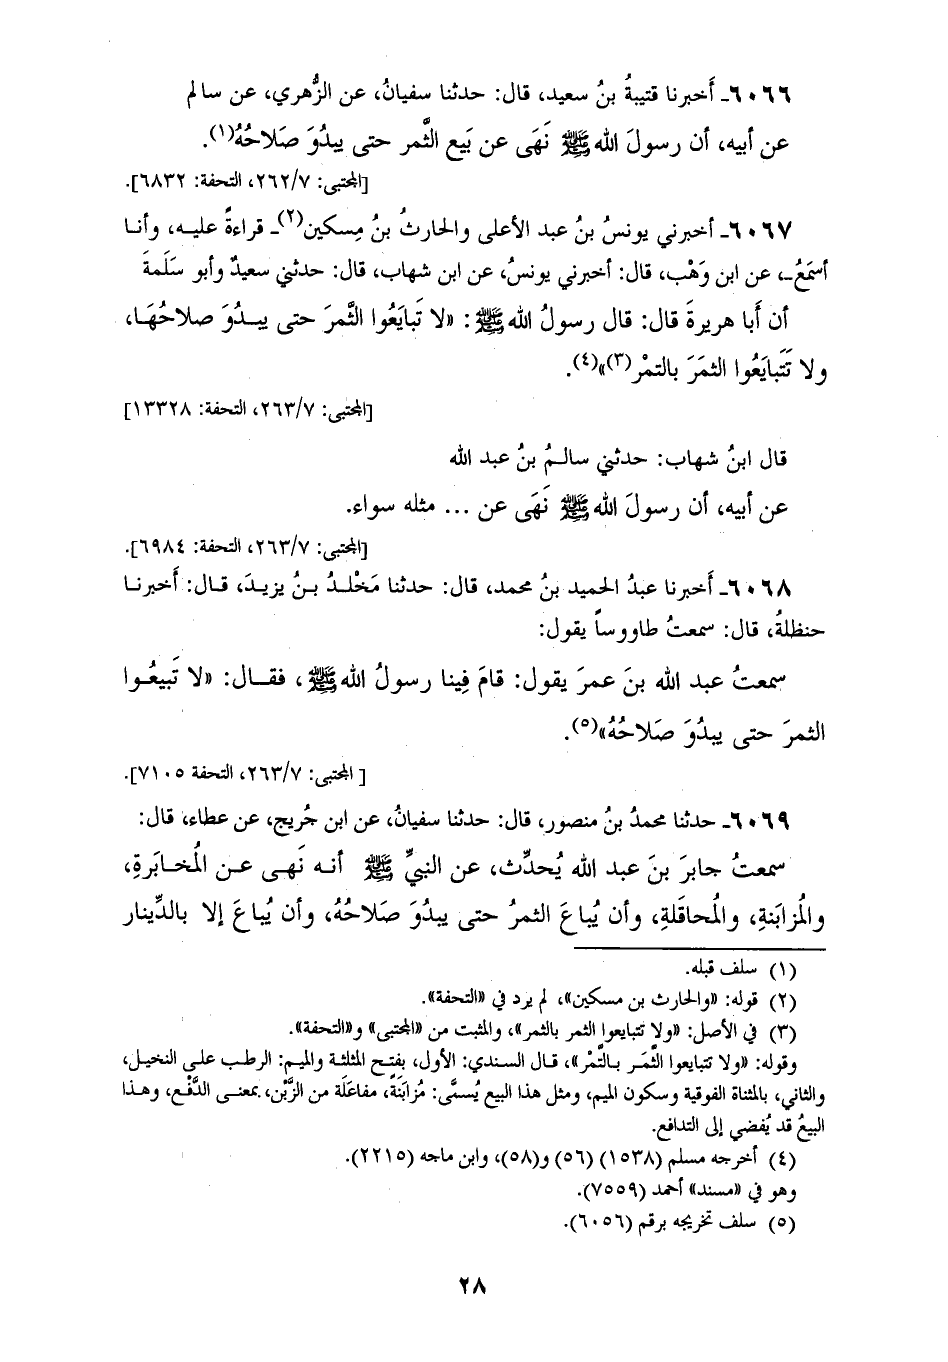 ٦٠٦٦ـ أَخبرنا قتيبةُ بنُ سعيد، قال: حدثنا سفيانُ، عن الزُّهري، عن سالم
عن أبيه، أن رسولَ الله ﷺ نَهَى عن بَيع الثَّمر حتى يبدُوَ صَلاحُهُ(١).
[المجتبى: ٢٦٢/٧، التحفة: ٦٨٣٢].
٦٠٦٧ـ أخبرني يونسُ بنُ عبد الأعلى والحارثُ بنُ مِسكين(٢)ـ قراءةً عليه، وأنا
أسمَعُ ـ، عن ابن وَهْب، قال: أخبرني يونسُ، عن ابن شهاب، قال: حدثني سعيدٌ وأبو سَلَمةَ
أن أَبا هريرةَ قال: قال رسولُ الله ﷺ: «لا تَبايَعُوا الثَّمرَ حتى يبدُوَ صلاحُهَا،
ولا تَتَبايَعُوا الثمَرَ بالتمْر(٣)»(٤).
[المجتبى: ٢٦٣/٧، التحفة: ١٣٣٢٨]
قال ابنُ شهاب: حدثني سالمُ بنُ عبد الله
عن أبيه، أن رسولَ الله ﷺ نَهَى عن ... مثله سواء.
[المجتبى: ٢٦٣/٧، التحفة: ٦٩٨٤].
٦٠٦٨ـ أَخبرنا عبدُ الحميد بنُ محمد، قال: حدثنا مَخْلدُ بنُ يزيدَ، قال: أَخبرنا
حنظلةُ، قال: سمعتُ طاووساً يقول:
سمعتُ عبد الله بنَ عمرَ يقول: قامَ فِينا رسولُ الله ﷺ، فقال: «لا تَبيعُوا
الثمرَ حتى يبدُوَ صَلاحُهُ»(٥).
[ المجتبى: ٢٦٣/٧، التحفة ٧١٠٥].
٦٠٦٩ـ حدثنا محمدُ بنُ منصور، قال: حدثنا سفيانُ، عن ابن جُريج، عن عطاء، قال:
سمعتُ جابرَ بنَ عبد الله يُحدِّث، عن النبيِّ ﷺ أنه نَهى عن المُخابَرةِ،
والمُزابَنةِ، والمُحاقَلةِ، وأن يُباعَ الثمرُ حتى يبدُوَ صَلاحُهُ، وأن يُباعَ إلا بالدِّينار
(١) سلف قبله.
(٢) قوله: «والحارث بن مسكين»، لم يرد في «التحفة».
(٣) في الأصل: «ولا تتبايعوا الثمر بالثمر»، والمثبت من «المجتبى» و«التحفة».
وقوله: «ولا تتبايعوا الثَّمَر بالتَّمْر»، قال السندي: الأول، بفتح المثلثة والميم: الرطب على النخيل،
والثاني، بالمثناة الفوقية وسكون الميم، ومثل هذا البيع يُسمَّى: مُزابَنَة، مفاعَلَة من الزَّبْن، بمعنى الدَّفْع، وهذا
البيعُ قد يُفضي إلى التدافع.
(٤) أخرجه مسلم (١٥٣٨) (٥٦) و(٥٨)، وابن ماجه (٢٢١٥).
وهو في «مسند» أحمد (٧٥٥٩).
(٥) سلف تخريجه برقم (٦٠٥٦).
٢٨